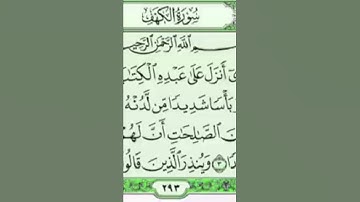 سُورَةُ الكَهْفِ
ـمِ ٱللَّهِ ٱلرَّحْمَٰنِ ٱلرَّحِيمِ
أَنزَلَ عَلَىٰ عَبْدِهِ ٱلْكِتَـٰبَ
بَأْسًا شَدِيدًا مِّن لَّدُنْهُ
ٱلصَّـٰلِحَـٰتِ أَنَّ لَهُمْ
٣ وَيُنذِرَ ٱلَّذِينَ قَالُوا
٢٩٣